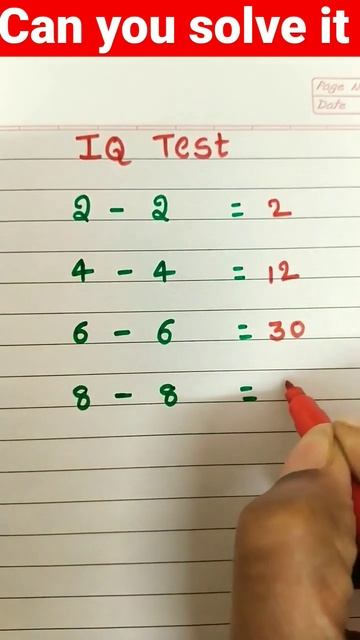 Can you solve it
Page N
Date
IQ Test
2 - 2 = 2
4 - 4 = 12
6 - 6 = 30
8 - 8 =